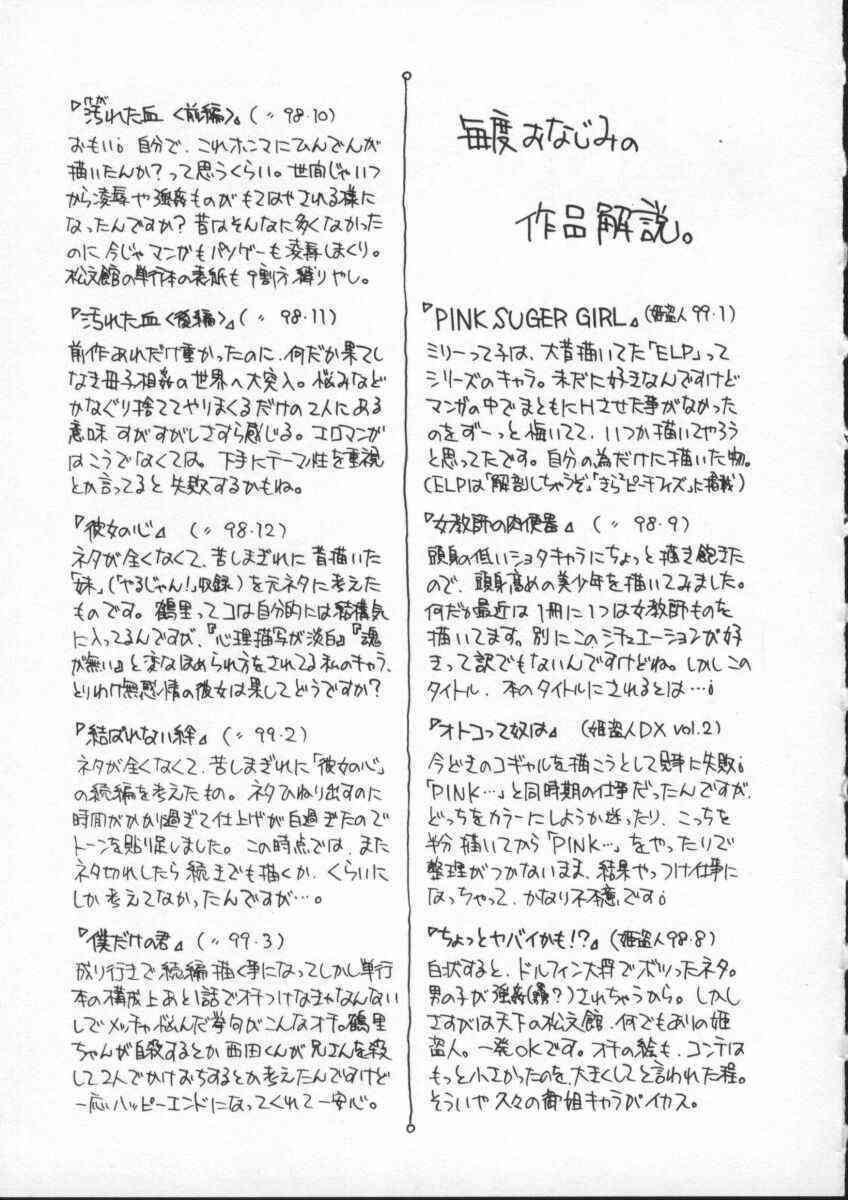 毎度おなじみの
作品解説。
『PINK SUGER GIRL』(姫盗人99・1)
ミリーって子は、大昔描いてた「ELP」って
シリーズのキャラ。未だに好きなんですけど
マンガの中でまともにHさせた事がなかった
のをずーっと悔いてて、いつか描いてやろう
と思ってたです。自分の為だけに描いた物。
(ELPは「解剖しちゃうぞ」「きらら ピーチフィズ」に掲載)
『女教師の肉便器』(〃98・9)
頭身の低いショタキャラにちょっと描き飽きた
ので、頭身高めの美少年を描いてみました。
何だか最近は1冊に1つは女教師ものを
描いてます。別にこのシチュエーションが好
きって訳でもないんですけどね。しかしこの
タイトル、本のタイトルにされるとは…。
『オトコって奴は』(姫盗人DX vol.2)
今どきのコギャルを描こうとして見事に失敗。
「PINK…」と同時期の仕事だったんですが、
どっちをカラーにしようか迷ったり、こっちを
半分描いてから「PINK…」をやったりで
整理がつかないまま、結果やっつけ仕事に
なっちゃって、かなり不本意です。
『ちょっとヤバイかも!?』(姫盗人98・8)
白状すると、ドルフィン大将でボツったネタ。
男の子が強姦(?)されちゃうから。しかし
さすがは天下の松文館、何でもありの姫
盗人。一発OKです。オチの絵も、コンテは
もっと小さかったのを、大きくしてと言われた程。
そういや久々の番組キャラがイカス。
『汚れた血〈前編〉』(〃98・10)
おもい。自分で、これホンマにひんでんが
描いたんか?って思うくらい。世間じゃいつ
から凌辱や強姦ものがもてはやされる様に
なったんですか?昔はそんなに多くなかった
のに今じゃマンガもパソゲーも凌辱しまくり。
松文館の単行本の表紙も9割方縛りやし。
『汚れた血〈後編〉』(〃98・11)
前作あれだけ重かったのに、何だか果てし
なき母子相姦の世界へ大突入。悩みなど
かなぐり捨ててやりまくるだけの2人にある
意味すがすがしさすら感じる。エロマンガ
はこうでなくては。下手にテーマ性を重視
とか言ってると失敗するかもね。
『彼女の心』(〃98・12)
ネタが全くなくて、苦しまぎれに昔描いた
「妹」(「やるじゃん!」収録)を元ネタに考えた
ものです。鶴里ってコは自分的には結構気
に入ってるんですが、『心理描写が淡白』『魂
が無い』と変なほめられ方をされてる私のキャラ、
とりわけ無感情の彼女は果してどうですか?
『結ばれない絆』(〃99・2)
ネタが全くなくて、苦しまぎれに「彼女の心」
の続編を考えたもの。ネタひねり出すのに
時間がかかり過ぎて仕上げが白過ぎたので
トーンを貼り足しました。この時点では、また
ネタ切れしたら続きでも描くか、くらいに
しか考えてなかったんですが…。
『僕だけの君』(〃99・3)
成り行きで続編描く事になってしかし単行
本の構成上あと1話でオチつけなきゃなんない
しでメッチャ悩んだ挙句がこんなオチ。鶴里
ちゃんが自殺するとか西田くんが兄さんを殺
して2人でかけおちするとか考えたんですけど
一応ハッピーエンドになってくれて一安心。